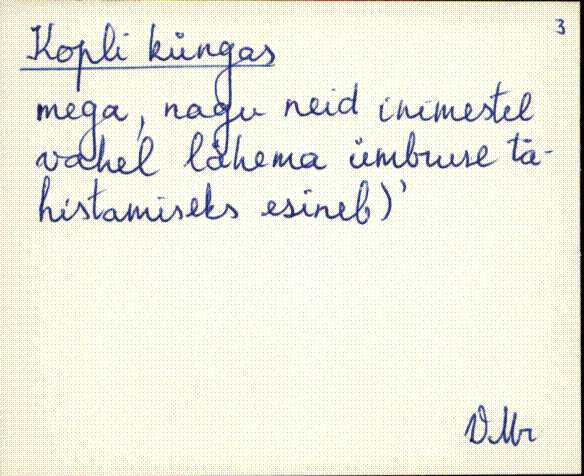 3
Kopli küngas
mega, nagu neid inimestel
vahel lähema ümbruse tä-
histamiseks esineb)'
VMr